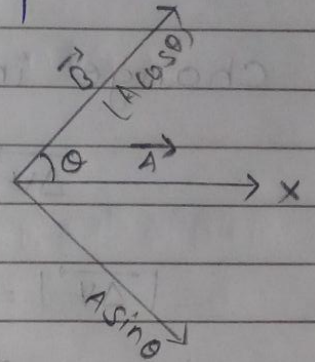 B⃗
(A cosθ)
θ
A⃗
X
A sinθ